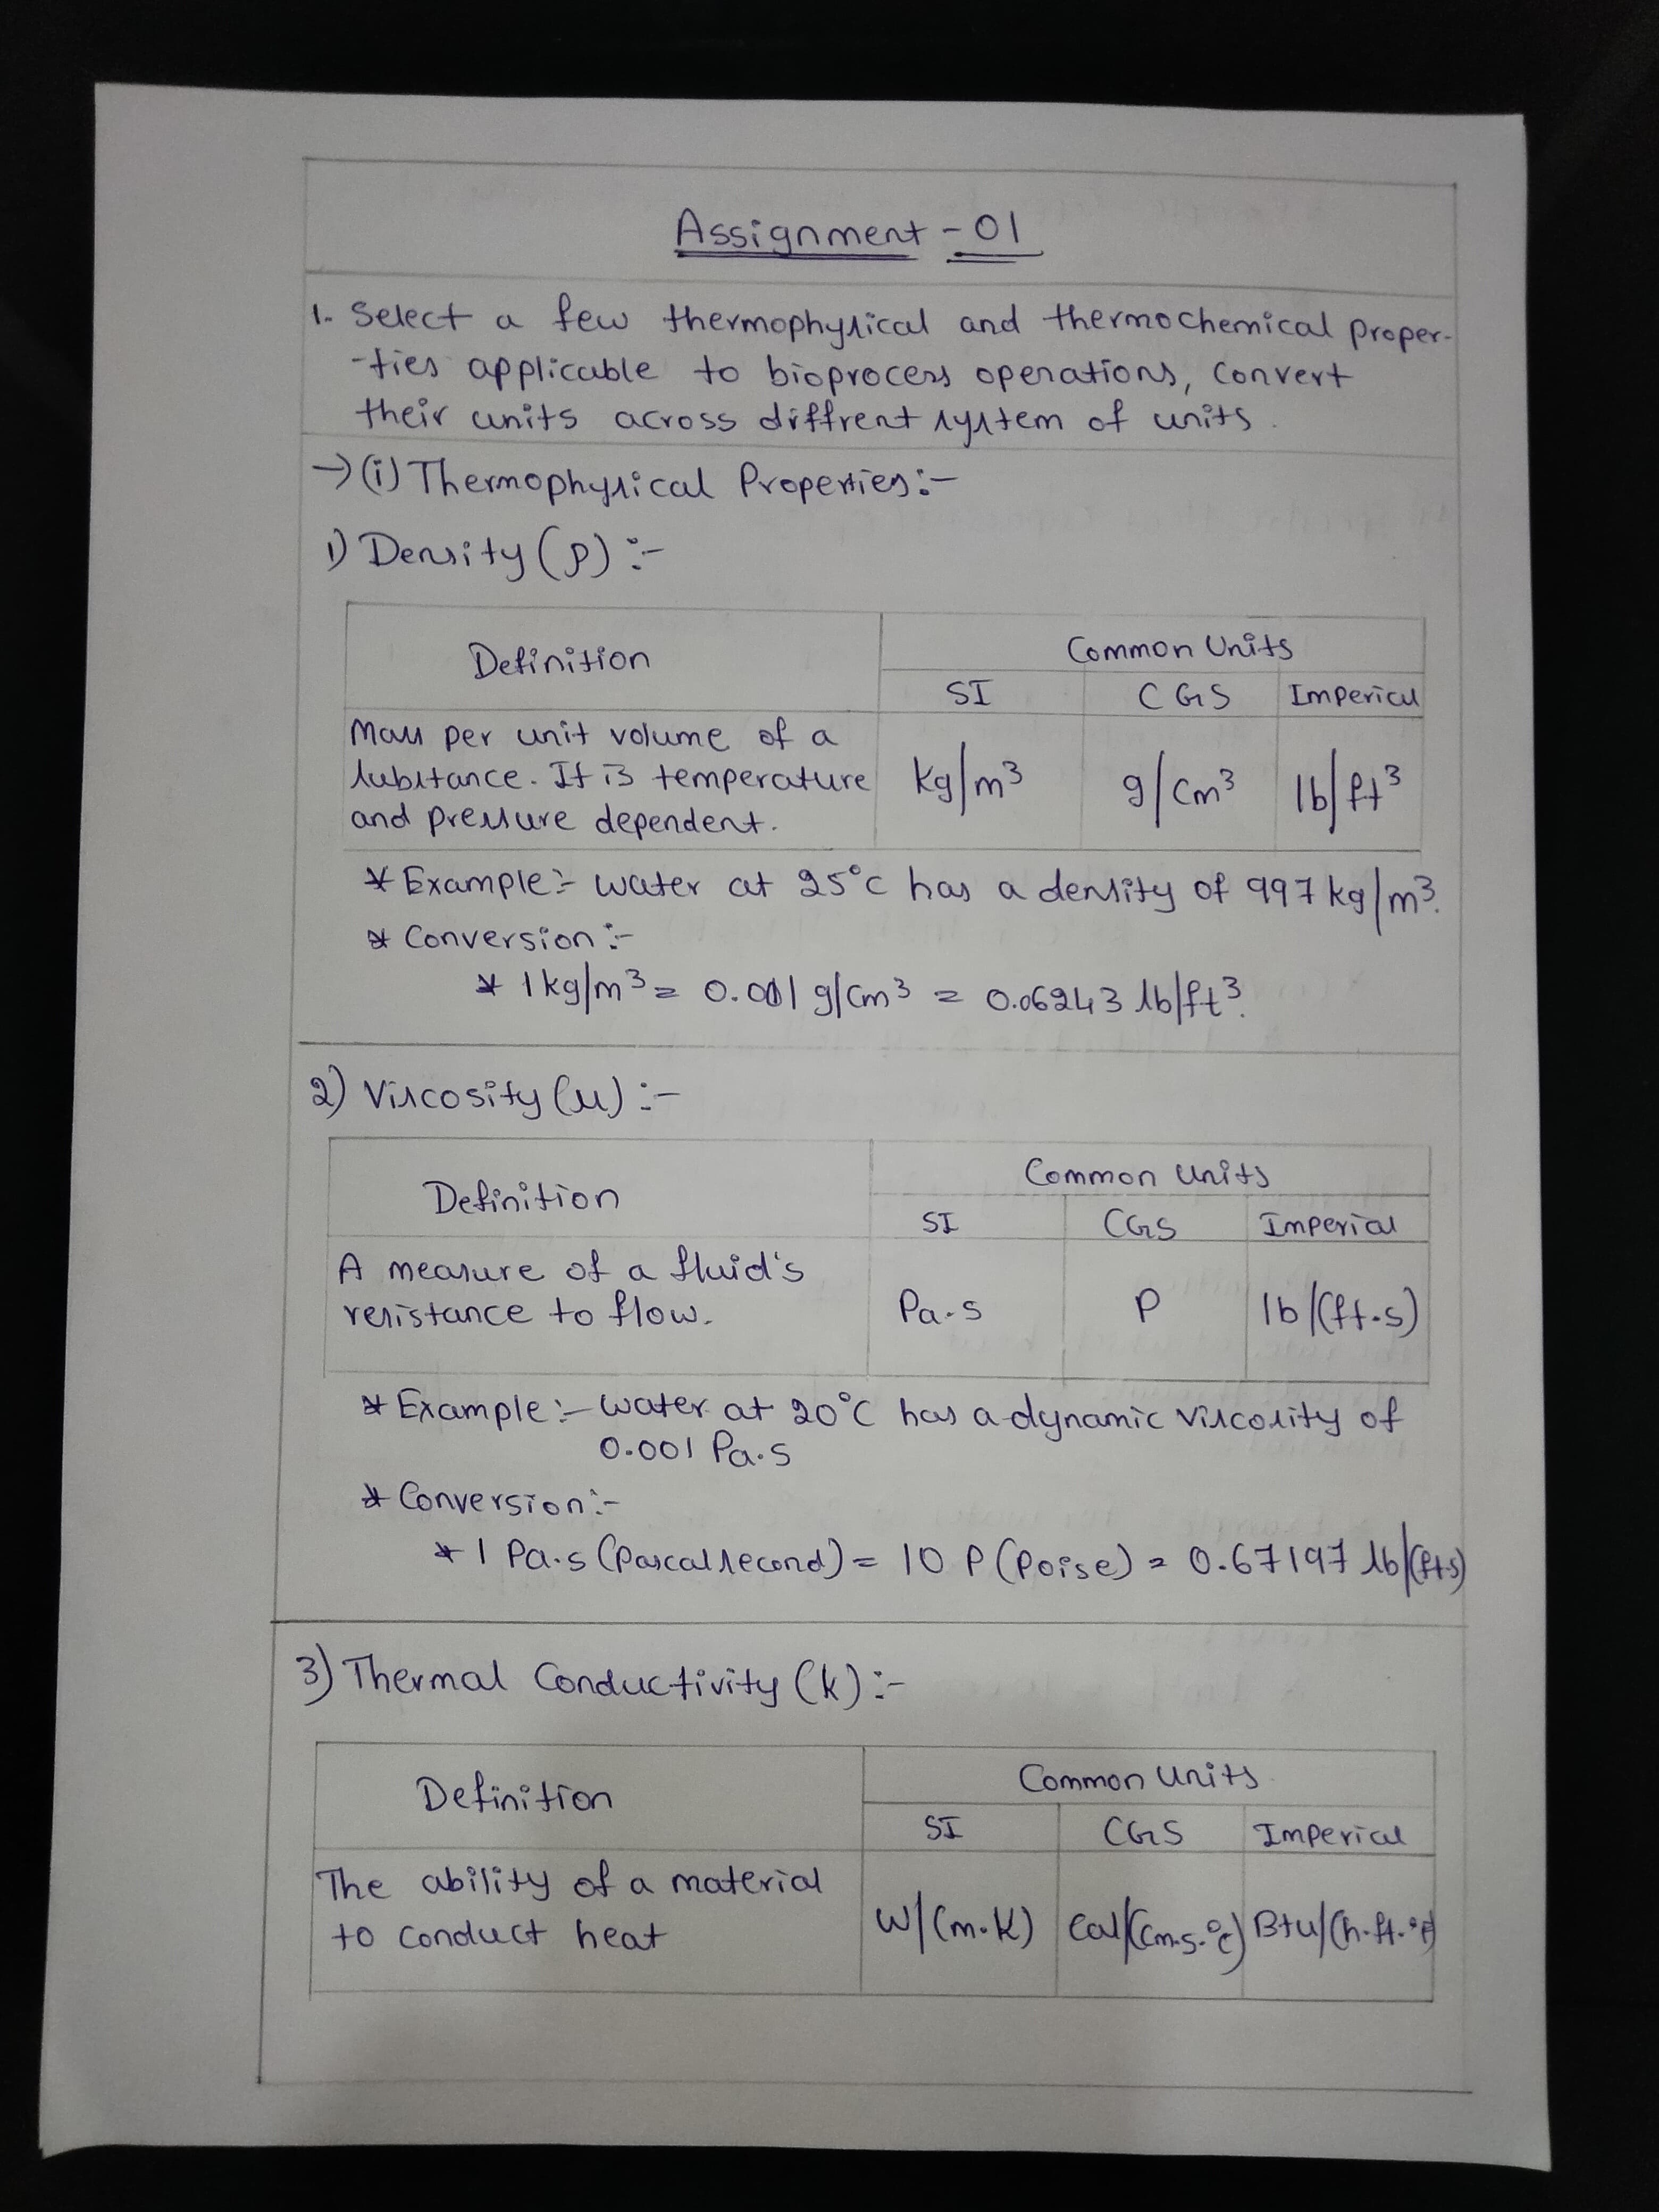 Assignment - 01
1. Select a few thermophysical and thermochemical proper-
-ties applicable to bioprocess operations, convert
their units across diffrent system of units.
→ (i) Thermophysical Properties:-
1) Density (ρ) :-
Definition
Common Units
SI CGS Imperial
Mass per unit volume of a
substance. It is temperature
and pressure dependent.
kg/m³ g/cm³ lb/ft³
* Example:- water at 25°c has a density of 997 kg/m³.
* Conversion :-
* 1kg/m³ = 0.001 g/cm³ = 0.06243 lb/ft³.
2) Viscosity (μ) :-
Definition
Common Units
SI CGS Imperial
A measure of a fluid's
resistance to flow.
Pa.s P lb/(ft.s)
* Example :- water at 20°C has a dynamic viscosity of
0.001 Pa.s
* Conversion:-
* 1 Pa.s (Pascal second) = 10 P (Poise) = 0.67197 lb/(ft.s)
3) Thermal Conductivity (k) :-
Definition
Common Units
SI CGS Imperial
The ability of a material
to conduct heat
W/(m.K) Cal/(cm.s.°c) Btu/(h.ft.°F)